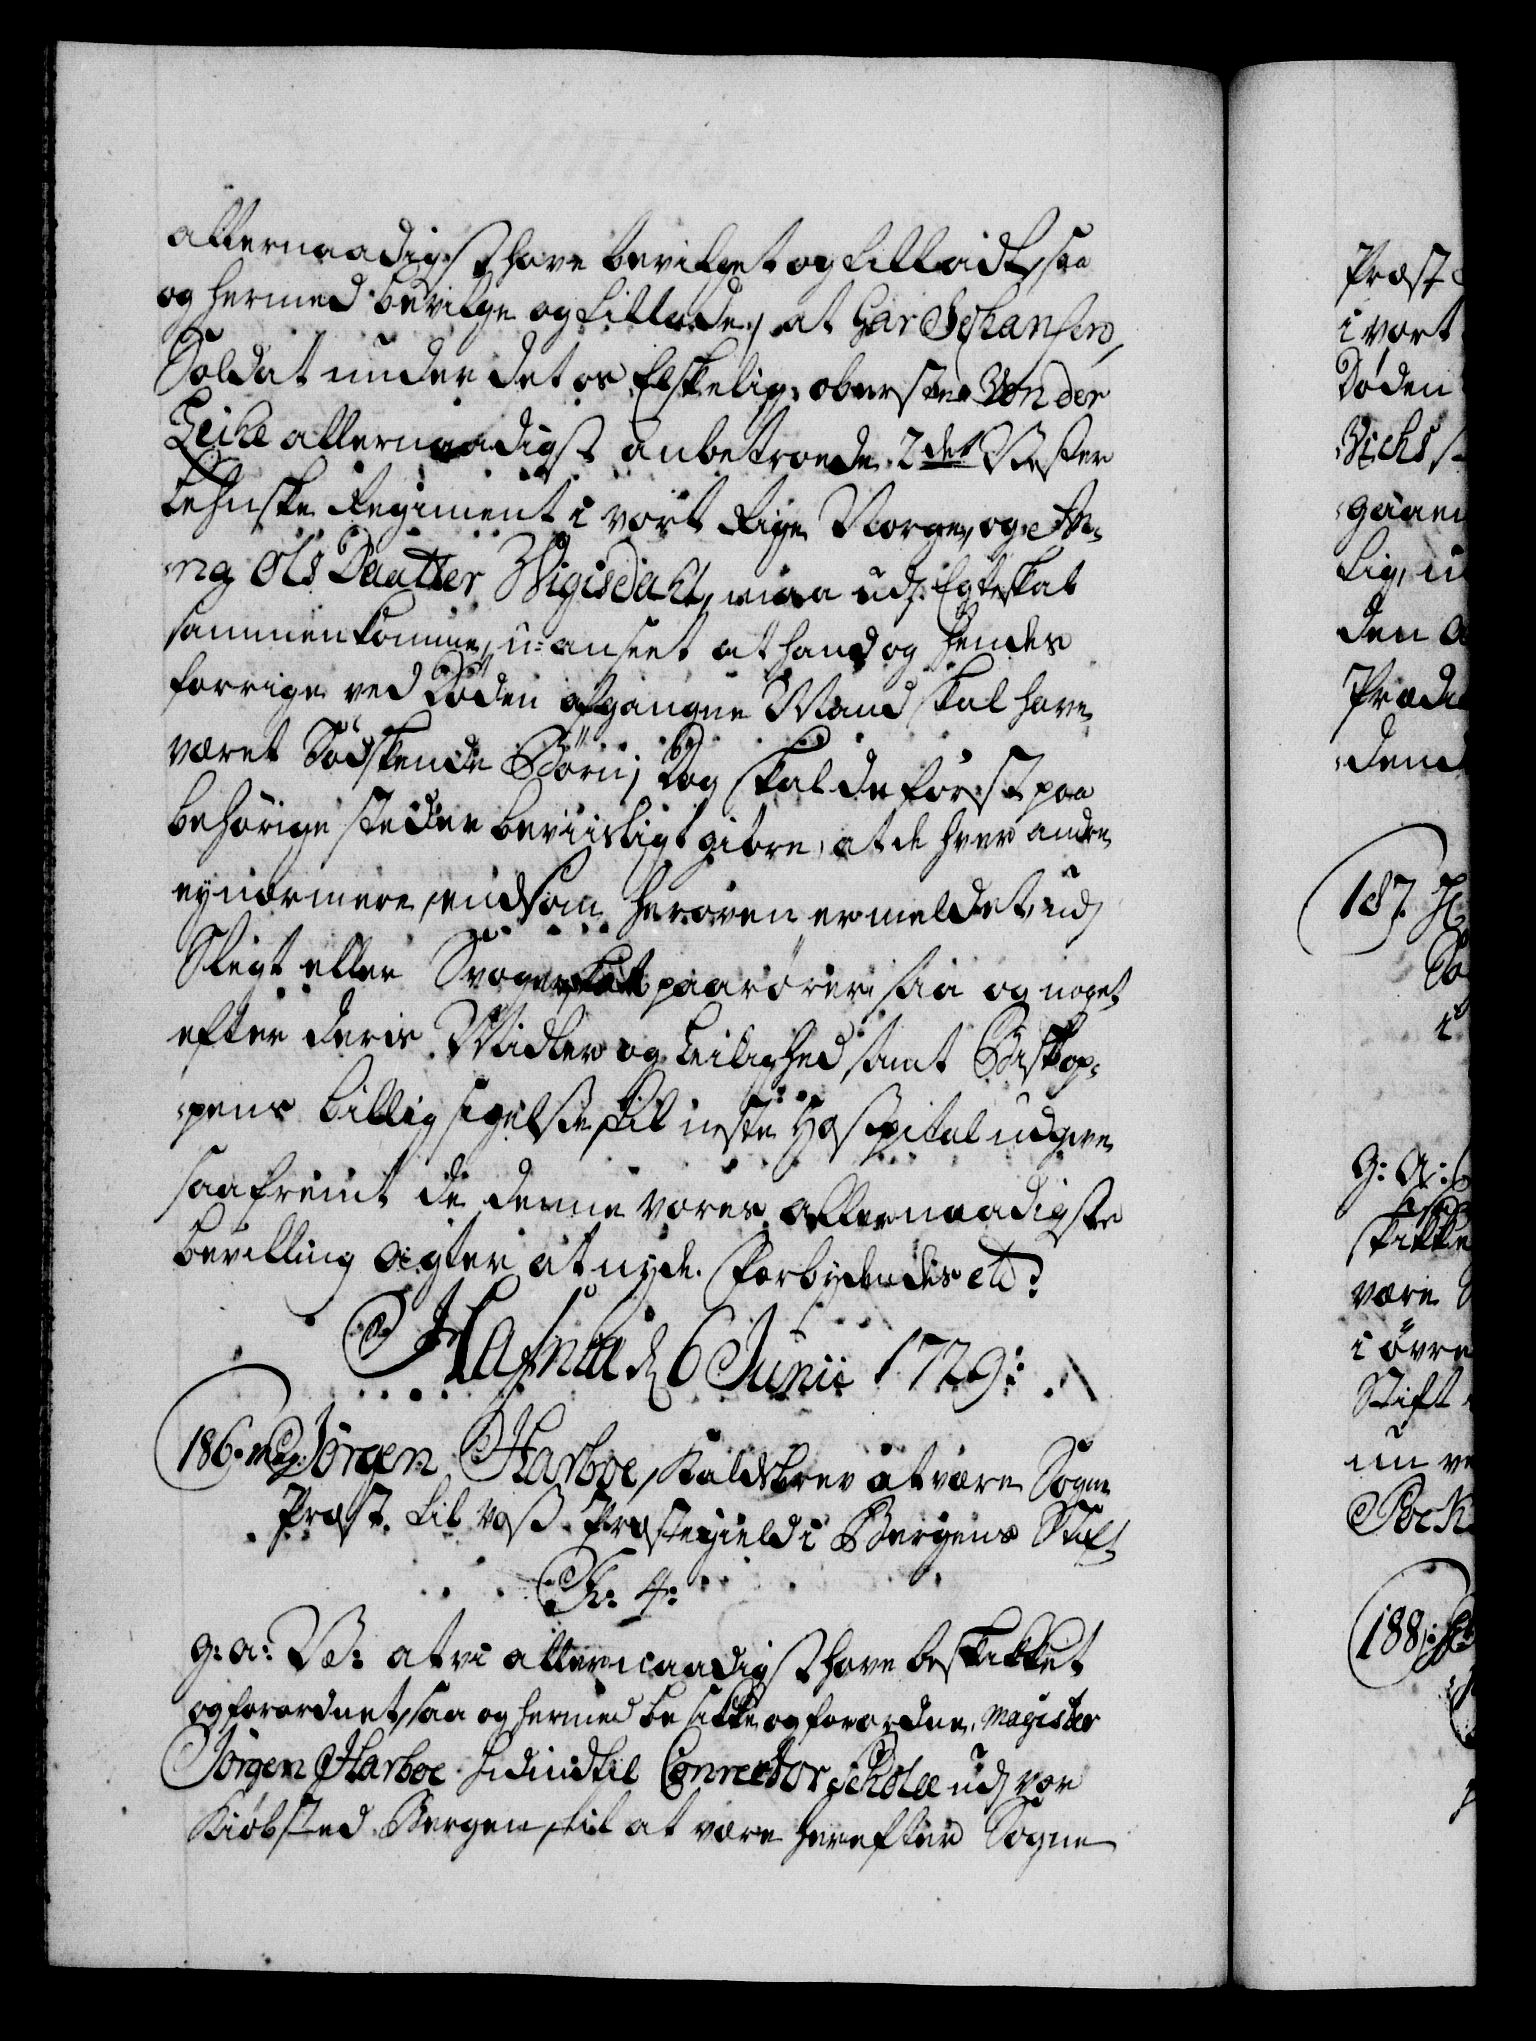 allernaadigst have bevilget og tilladt, saa
og hermed bevilge og tillade, at Har Johansen,
Soldat under det os Elskelig. oberste Von der
Leihe allernaadigst anbetroede 2det Vester
lehnske Regiment i vort Rige Norge, og An-
-ng Ols Daatter Wigisdahl, maa udj Egteskab
sammenkomme, u-anseet at hand og hendes
forrige ved Døden afgangne Mand skal have
været Södskende Börn; Dog skal de först paa
behörige steder beviisligt giöre, at de hver andre
ey nærmere, end som heroven ermeldet, udj
Slegt eller Svogerskab paarörer, saa og noget
efter deris Midler og Leilighed samt Biskop-
-pens billig sigelse, til neste Hospital udgive
saafremt de denne vores allernaadigste
bevilling agter at nyde. Forbydendes etc:
Hafnia d 6 Junii 1729:
186. Mag. Jörgen Harboe, Kaldsbrev at være Sogne
Præst til Voss Præstegield i Bergens Stift
K: 4:
G: A: V: at vi allernaadigst have beskikket
og forordnet, saa og hermed beskikke og forordne, Magister
Jörgen Harboe hidindtil Conrector Scholæ udj vor
Kiöbsted Bergen, til at være herefter Sogne
Præst
i vort
Döden
Vichs
gaaen
lig, u
den
Præd
dend
187.
So
i
G: A:
skikke
være
i övre
Stift
nu ve
Bock
188: